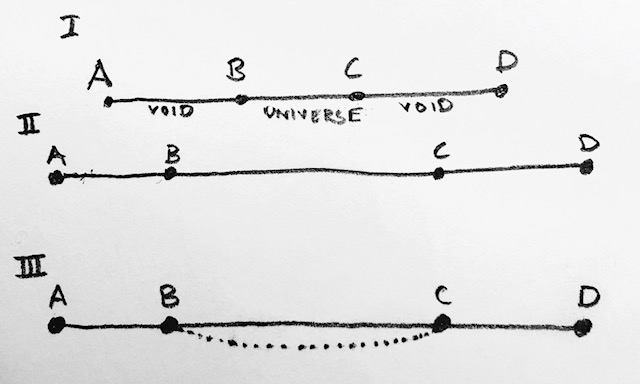 I
A B C D
VOID UNIVERSE VOID
II
A B C D
III
A B C D